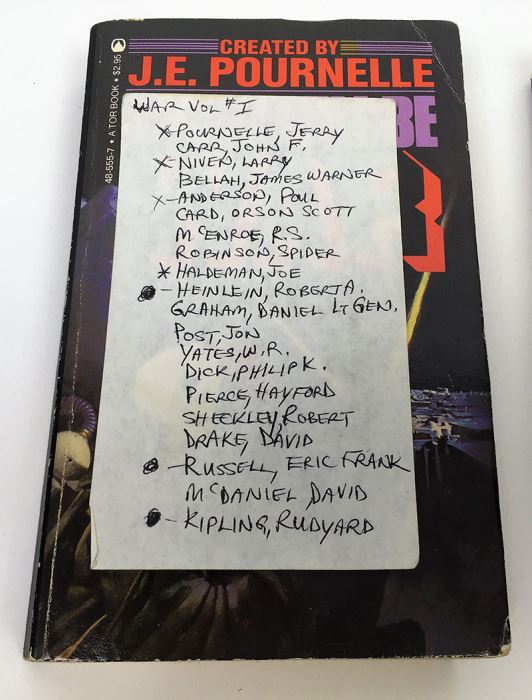 CREATED BY
J.E. POURNELLE
BE
48-555-7 • A TOR BOOK • $2.95
WAR VOL #I
X-POURNELLE, JERRY
CARR, JOHN F.
X-NIVEN, LARRY
BELLAH, JAMES WARNER
X-ANDERSON, POUL
CARD, ORSON SCOTT
McENROE, R.S.
ROBINSON, SPIDER
X HALDEMAN, JOE
- HEINLEIN, ROBERT A.
GRAHAM, DANIEL LT GEN.
POST, JON
YATES, W.R.
DICK, PHILIP K.
PIERCE, HAYFORD
SHECKLEY, ROBERT
DRAKE, DAVID
- RUSSELL, ERIC FRANK
McDANIEL, DAVID
- KIPLING, RUDYARD